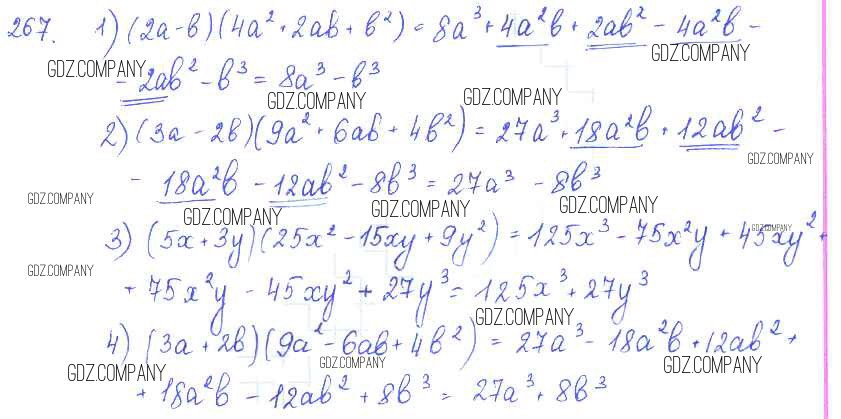 267. 1) (2a-b)(4a²+2ab+b²) = 8a³+4a²b+2ab²-4a²b-
GDZ.COMPANY
-2ab²-b³=8a³-b³
GDZ.COMPANY GDZ.COMPANY
2) (3a-2b)(9a²+6ab+4b²)=27a³+18a²b+12ab²-
GDZ.COMPANY
-18a²b-12ab²-8b³=27a³-8b³
GDZ.COMPANY GDZ.COMPANY GDZ.COMPANY GDZ.COMPANY
3) (5x+3y)(25x²-15xy+9y²)=125x³-75x²y+45xy²+
GDZ.COMPANY GDZ.COMPANY
+75x²y-45xy²+27y³=125x³+27y³
GDZ.COMPANY
4) (3a+2b)(9a²-6ab+4b²)=27a³-18a²b+12ab²+
GDZ.COMPANY GDZ.COMPANY GDZ.COMPANY
+18a²b-12ab²+8b³=27a³+8b³